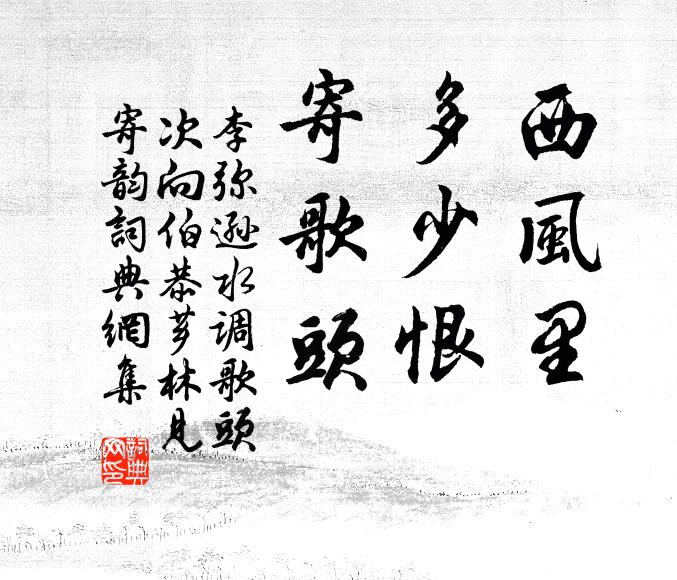 西風里
多少恨
寄歌頭
李弥遜水调歌頭
次向伯恭芗林見
寄韵詞典網集
詞典
网印